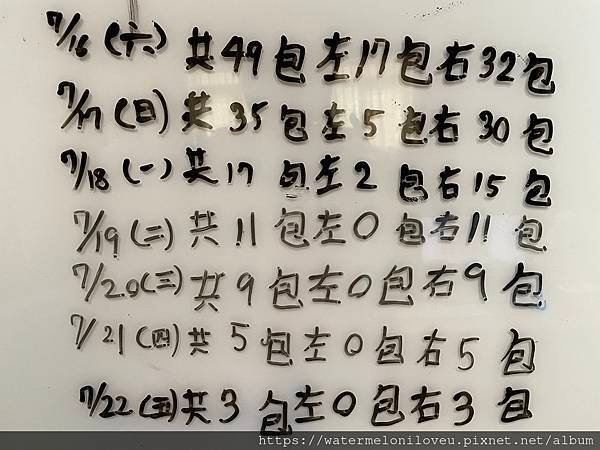 7/16(六)共49包左17包右32包
7/17(日)共35包左5包右30包
7/18(一)共17包左2包右15包
7/19(二)共11包左0包右11包
7/20(三)共9包左0包右9包
7/21(四)共5包左0包右5包
7/22(五)共3包左0包右3包
https://watermeloniloveu.pixnet.net/album